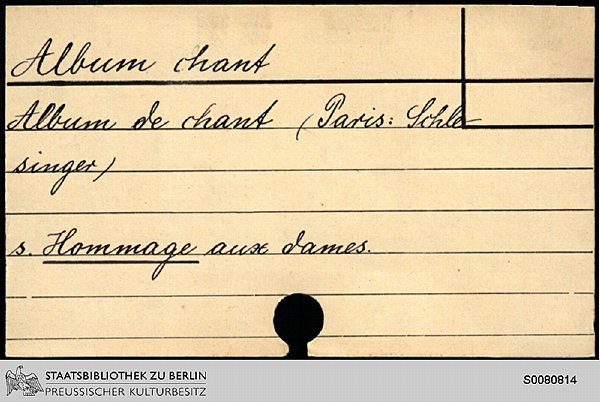 Album chant
Album de chant (Paris: Schle-
singer)
s. Hommage aux dames.
STAATSBIBLIOTHEK ZU BERLIN
PREUSSISCHER KULTURBESITZ
S0080814